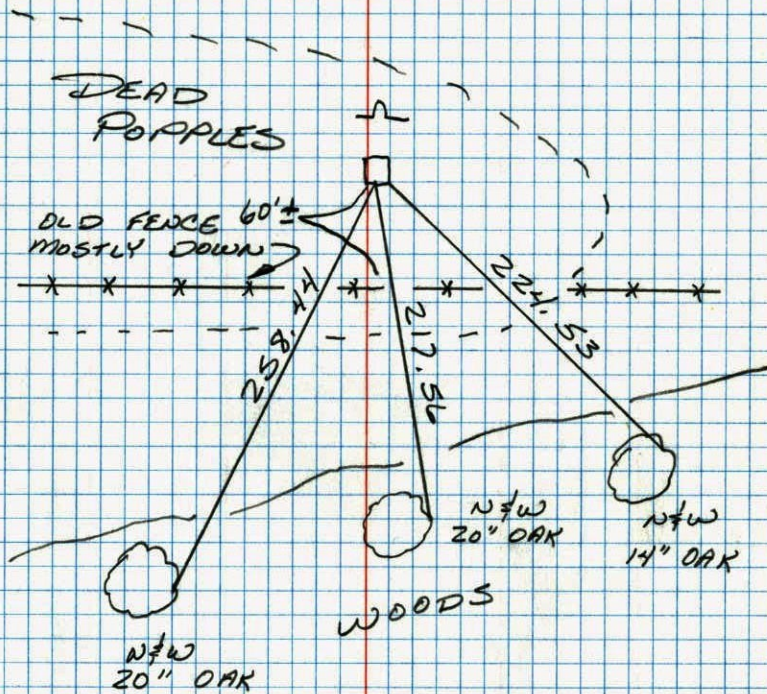 DEAD
POPPLES
OLD FENCE
MOSTLY DOWN
60'±
258.44
217.56
224.53
N&W
20" OAK
N&W
14" OAK
WOODS
N&W
20" OAK